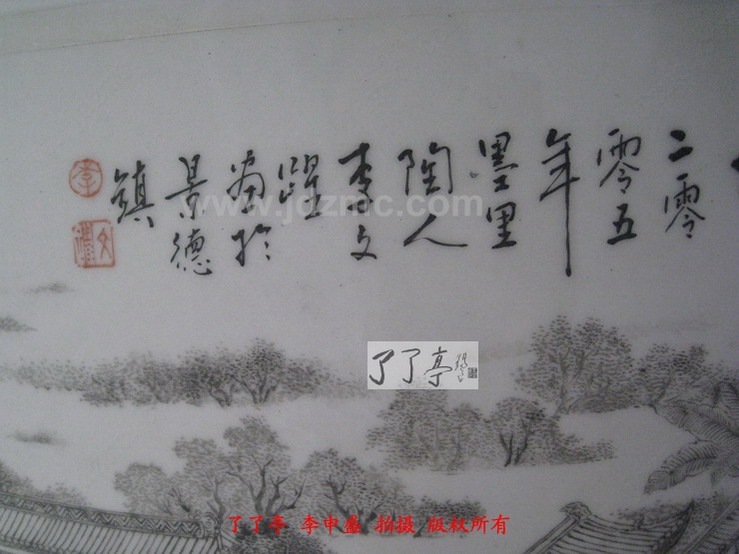 二零
零五
年
墨里
陶人
李文
躍
畫於
景德
鎮
李
www.jdzmc.com
了了亭
了了亭 李申盛 拍摄 版权所有